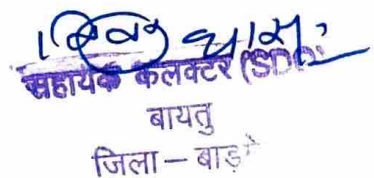 सहायक कलक्टर (SDO)
बायतु
जिला – बाड़